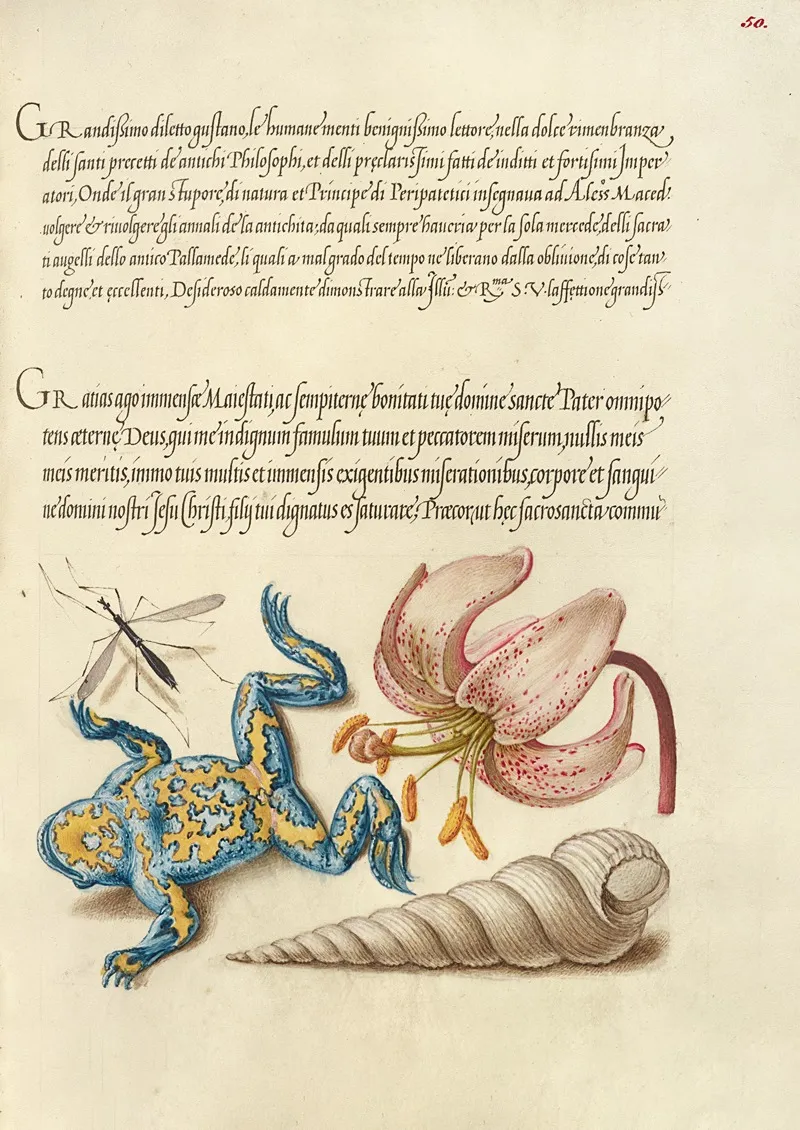 50.
GRandissimo diletto gustano, le humane menti benignissimo lettore, nella dolce rimenbranza,
delli santi precetti de antichi Philosophi, et delli pręclarissimi fatti de inditti et fortisimi Imper
atori, Onde il gran stupore, di natura et Principe di Peripatetici insegnaua ad Aless Maced:
uolgere & riuolgere gli annali de la antichita, da quali sempre haueria per la sola mercede, delli sacra
ti augelli dello antico Pallamede, li quali a malgrado del tempo ne liberano dalla obliuione, di cose tan
to degne, et eccellenti, Desideroso caldamente dimonstrare alla Illu: & Rma S. V. laffettione grandiss
GRatias ago immensæ Maiestati, ac sempiternę bonitati tuę domine sancte Pater omnipo
tens æternę Deus, qui me indignum famulum tuum et peccatorem miserum, nullis meis
meis meritis, immo tuis multis et immensis exigentibus miserationibus, corpore et sangui
ne domini nostri Jesu Christi, filij tui dignatus es saturare, Præcor, ut hęc sacrosancta commu